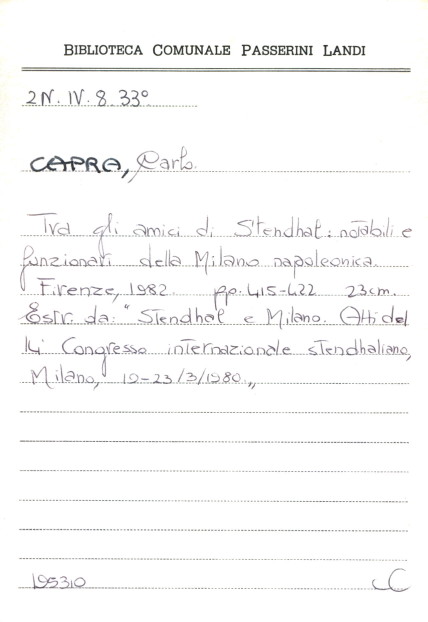 BIBLIOTECA COMUNALE PASSERINI LANDI
2N. IV. 8. 33°
CAPRA, Carlo.
Tra gli amici di Stendhal: notabili e
funzionari della Milano napoleonica.
Firenze, 1982. pp. 415-422 23cm.
Estr. da: "Stendhal e Milano. Atti del
14° Congresso internazionale stendhaliano,
Milano, 19-23/3/1980.„
195310 C